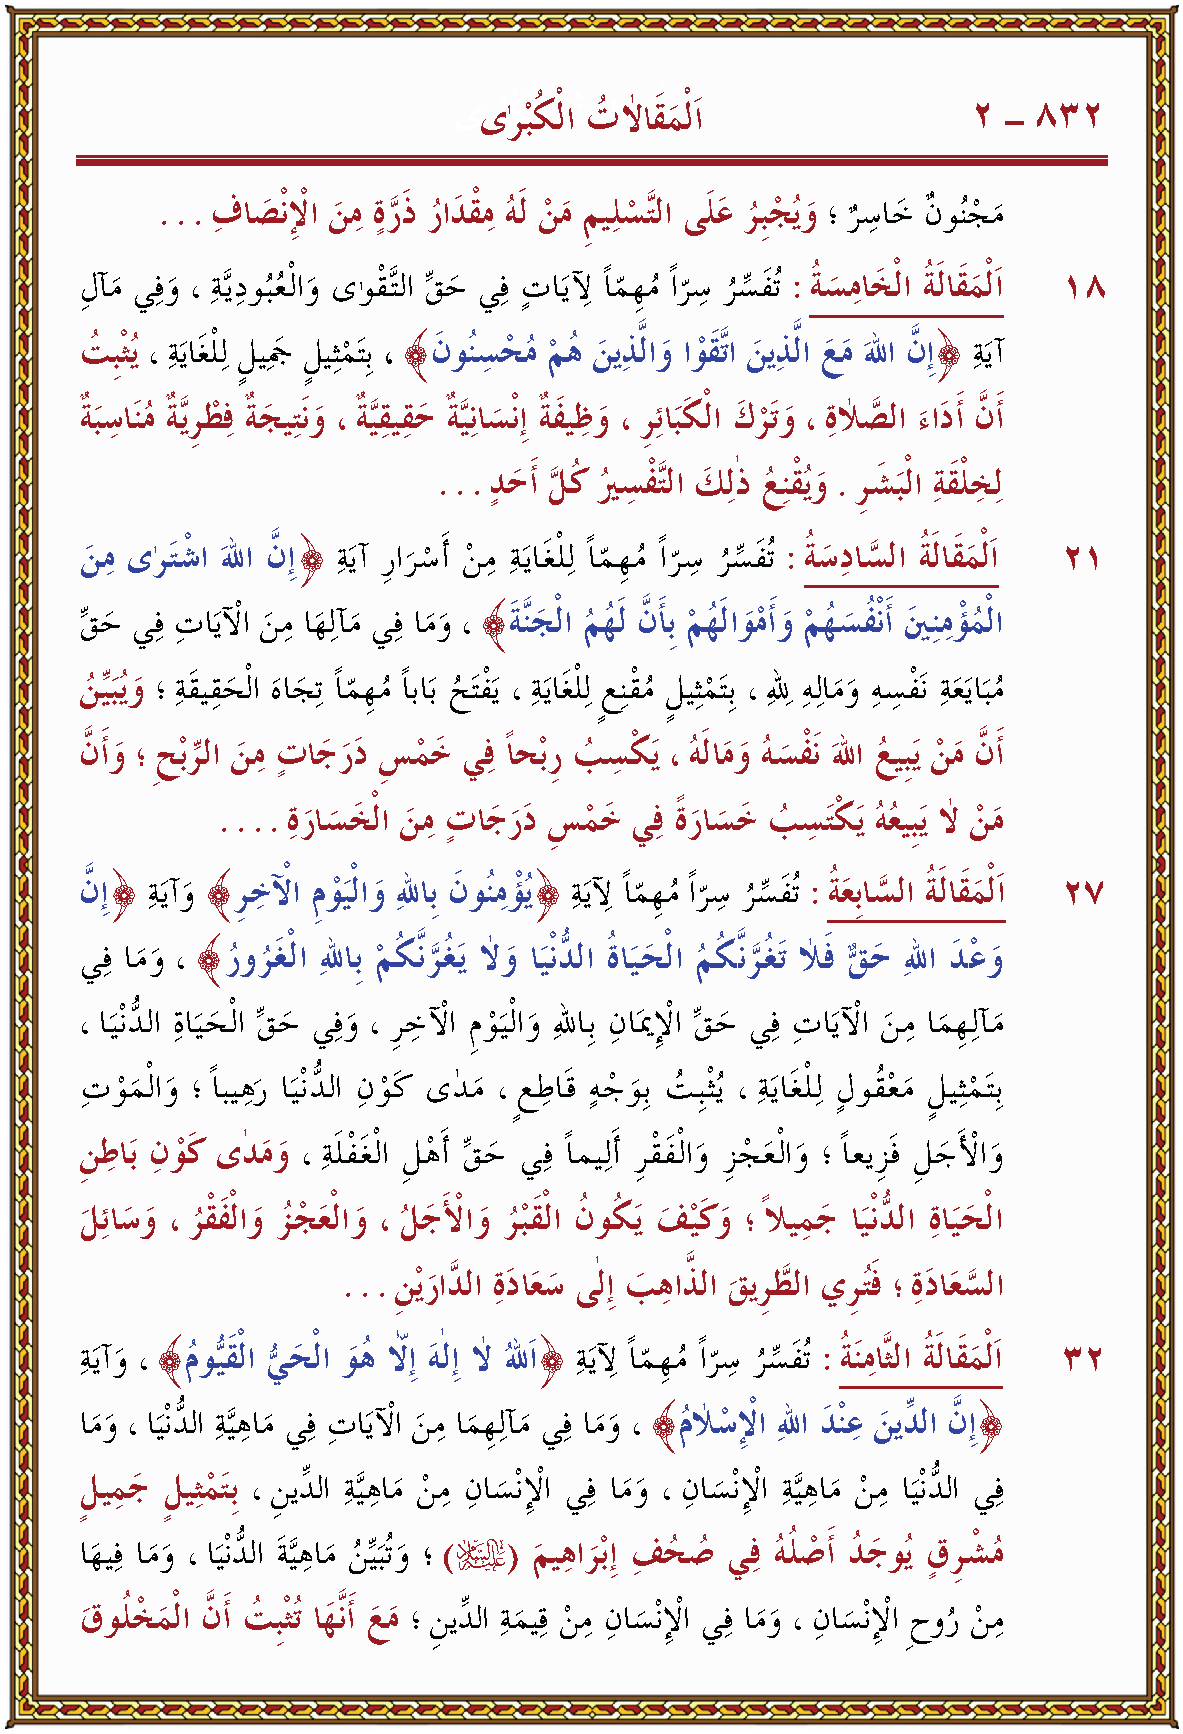 ٨٣٢ – ٢ اَلْمَقَالاٰتُ الْكُبْرٰى
مَجْنُونٌ خَاسِرٌ ؛ وَيُجْبِرُ عَلَى التَّسْلِيمِ مَنْ لَهُ مِقْدَارُ ذَرَّةٍ مِنَ الْإِنْصَافِ . . .
١٨ اَلْمَقَالَةُ الْخَامِسَةُ : تُفَسِّرُ سِرّاً مُهِمّاً لِآيَاتٍ فِي حَقِّ التَّقْوٰى وَالْعُبُودِيَّةِ ، وَفِي مَآلِ
آيَةِ ﴿إِنَّ اللهَ مَعَ الَّذِينَ اتَّقَوْا وَالَّذِينَ هُمْ مُحْسِنُونَ﴾ ، بِتَمْثِيلٍ جَمِيلٍ لِلْغَايَةِ ، يُثْبِتُ
أَنَّ أَدَاءَ الصَّلاٰةِ ، وَتَرْكَ الْكَبَائِرِ ، وَظِيفَةٌ إِنْسَانِيَّةٌ حَقِيقِيَّةٌ ، وَنَتِيجَةٌ فِطْرِيَّةٌ مُنَاسِبَةٌ
لِخِلْقَةِ الْبَشَرِ . وَيُقْنِعُ ذٰلِكَ التَّفْسِيرُ كُلَّ أَحَدٍ . . .
٢١ اَلْمَقَالَةُ السَّادِسَةُ : تُفَسِّرُ سِرّاً مُهِمّاً لِلْغَايَةِ مِنْ أَسْرَارِ آيَةِ ﴿إِنَّ اللهَ اشْتَرٰى مِنَ
الْمُؤْمِنِينَ أَنْفُسَهُمْ وَأَمْوَالَهُمْ بِأَنَّ لَهُمُ الْجَنَّةَ﴾ ، وَمَا فِي مَآلِهَا مِنَ الْآيَاتِ فِي حَقِّ
مُبَايَعَةِ نَفْسِهِ وَمَالِهِ لِلهِ ، بِتَمْثِيلٍ مُقْنِعٍ لِلْغَايَةِ ، يَفْتَحُ بَاباً مُهِمّاً تِجَاهَ الْحَقِيقَةِ ؛ وَيُبَيِّنُ
أَنَّ مَنْ يَبِيعُ اللهَ نَفْسَهُ وَمَالَهُ ، يَكْسِبُ رِبْحاً فِي خَمْسِ دَرَجَاتٍ مِنَ الرِّبْحِ ؛ وَأَنَّ
مَنْ لاٰ يَبِيعُهُ يَكْتَسِبُ خَسَارَةً فِي خَمْسِ دَرَجَاتٍ مِنَ الْخَسَارَةِ . . . .
٢٧ اَلْمَقَالَةُ السَّابِعَةُ : تُفَسِّرُ سِرّاً مُهِمّاً لِآيَةِ ﴿يُؤْمِنُونَ بِاللهِ وَالْيَوْمِ الْآخِرِ﴾ وَآيَةِ ﴿إِنَّ
وَعْدَ اللهِ حَقٌّ فَلاٰ تَغُرَّنَّكُمُ الْحَيَاةُ الدُّنْيَا وَلاٰ يَغُرَّنَّكُمْ بِاللهِ الْغَرُورُ﴾ ، وَمَا فِي
مَآلِهِمَا مِنَ الْآيَاتِ فِي حَقِّ الْإِيمَانِ بِاللهِ وَالْيَوْمِ الْآخِرِ ، وَفِي حَقِّ الْحَيَاةِ الدُّنْيَا ،
بِتَمْثِيلٍ مَعْقُولٍ لِلْغَايَةِ ، يُثْبِتُ بِوَجْهٍ قَاطِعٍ ، مَدٰى كَوْنِ الدُّنْيَا رَهِيباً ؛ وَالْمَوْتِ
وَالْأَجَلِ فَزِيعاً ؛ وَالْعَجْزِ وَالْفَقْرِ أَلِيماً فِي حَقِّ أَهْلِ الْغَفْلَةِ ، وَمَدٰى كَوْنِ بَاطِنِ
الْحَيَاةِ الدُّنْيَا جَمِيلاً ؛ وَكَيْفَ يَكُونُ الْقَبْرُ وَالْأَجَلُ ، وَالْعَجْزُ وَالْفَقْرُ ، وَسَائِلَ
السَّعَادَةِ ؛ فَتُرِي الطَّرِيقَ الذَّاهِبَ إِلٰى سَعَادَةِ الدَّارَيْنِ . . .
٣٢ اَلْمَقَالَةُ الثَّامِنَةُ : تُفَسِّرُ سِرّاً مُهِمّاً لِآيَةِ ﴿اَللهُ لاٰ إِلٰهَ إِلاّٰ هُوَ الْحَيُّ الْقَيُّومُ﴾ ، وَآيَةِ
﴿إِنَّ الدِّينَ عِنْدَ اللهِ الْإِسْلاٰمُ﴾ ، وَمَا فِي مَآلِهِمَا مِنَ الْآيَاتِ فِي مَاهِيَّةِ الدُّنْيَا ، وَمَا
فِي الدُّنْيَا مِنْ مَاهِيَّةِ الْإِنْسَانِ ، وَمَا فِي الْإِنْسَانِ مِنْ مَاهِيَّةِ الدِّينِ ، بِتَمْثِيلٍ جَمِيلٍ
مُشْرِقٍ يُوجَدُ أَصْلُهُ فِي صُحُفِ إِبْرَاهِيمَ (عليه السلام) ؛ وَتُبَيِّنُ مَاهِيَّةَ الدُّنْيَا ، وَمَا فِيهَا
مِنْ رُوحِ الْإِنْسَانِ ، وَمَا فِي الْإِنْسَانِ مِنْ قِيمَةِ الدِّينِ ؛ مَعَ أَنَّهَا تُثْبِتُ أَنَّ الْمَخْلُوقَ